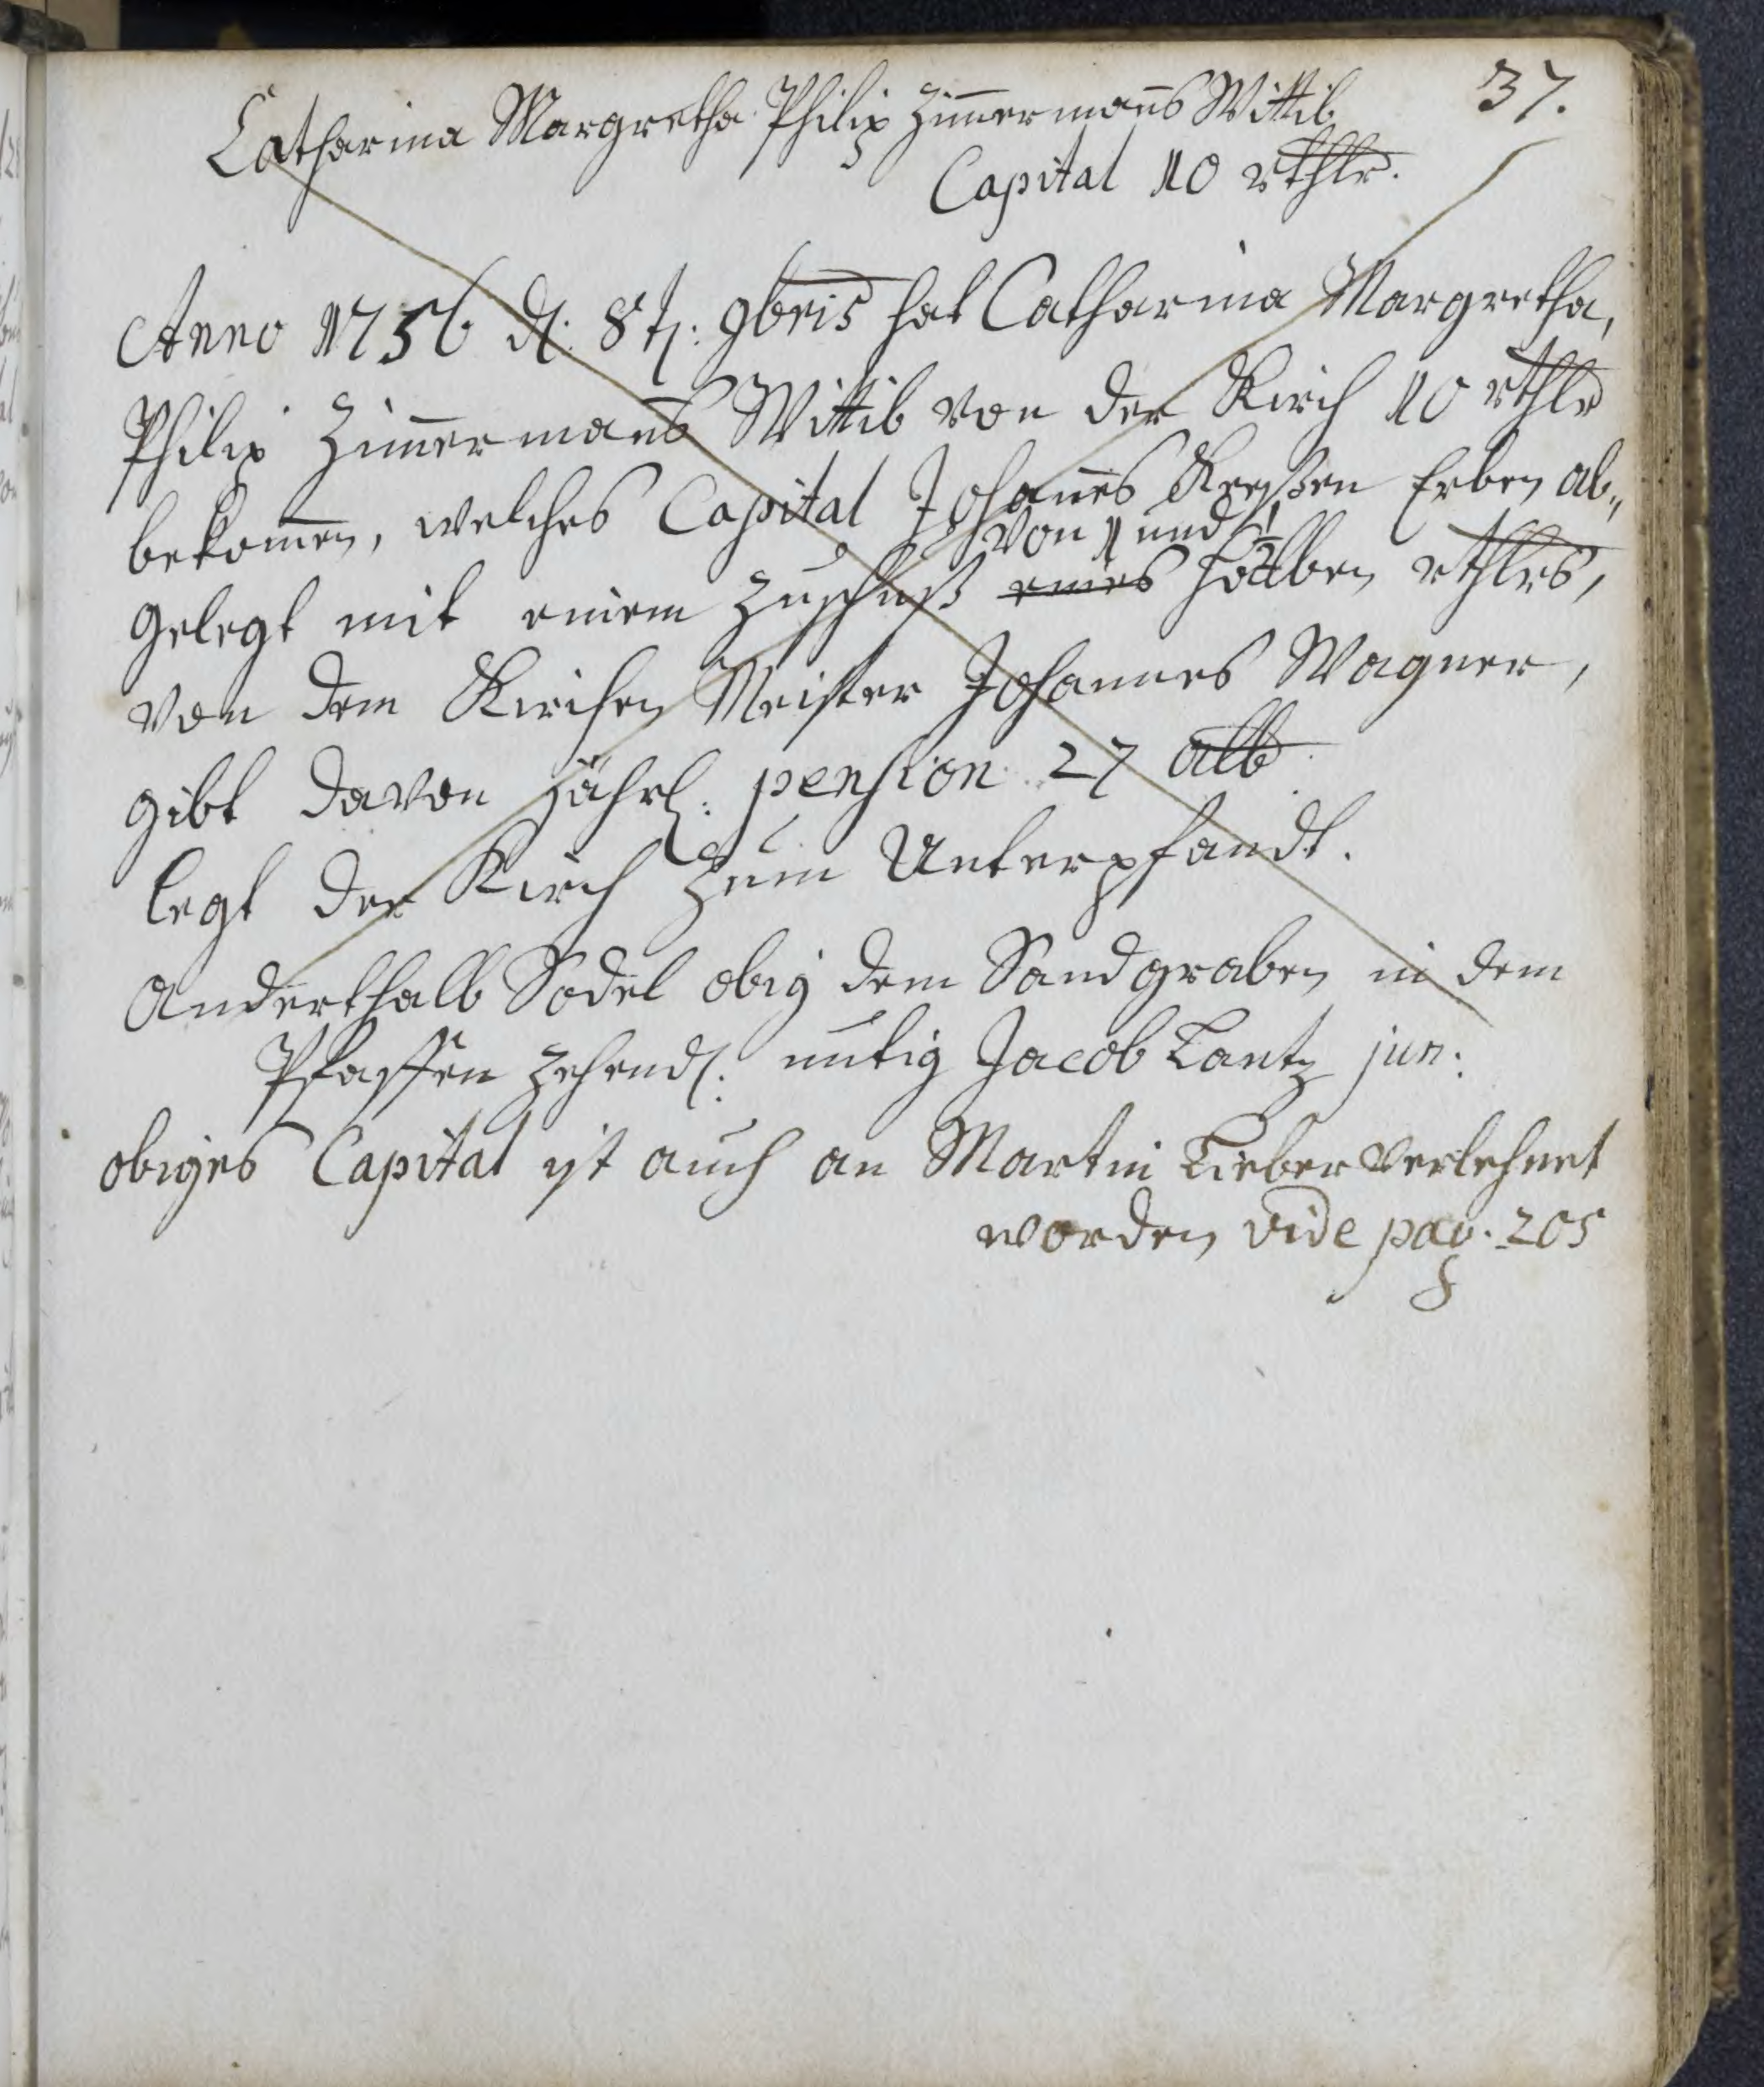 37.
Catharina Margretha Philip Zim̅erman̅s Wittib
Capital 10 rthlr.
Anno 1756 d: 8t: 9bris hat Catharina Margretha,
Philip Zim̅erman̅s Wittib von der Kirch 10 rthlr
bekom̅en, welches Capital Johan̅es Erben ab„
von 1 und 1/2
gelegt mit einem Zuschuß eines halben rthlrs,
von dem Kirchen Meister Johannes Wagner,
gibt davon jährl: pension 27 alb
legt der Kirch zum Unterpfandt.
Anderthalb Sodel obig dem Sandgraben in dem
Pfaffen zehend. untig Jacob Lantz jun:
obiges Capital ist auch an Martin Lieber verlehnet
worden vide pag. 205